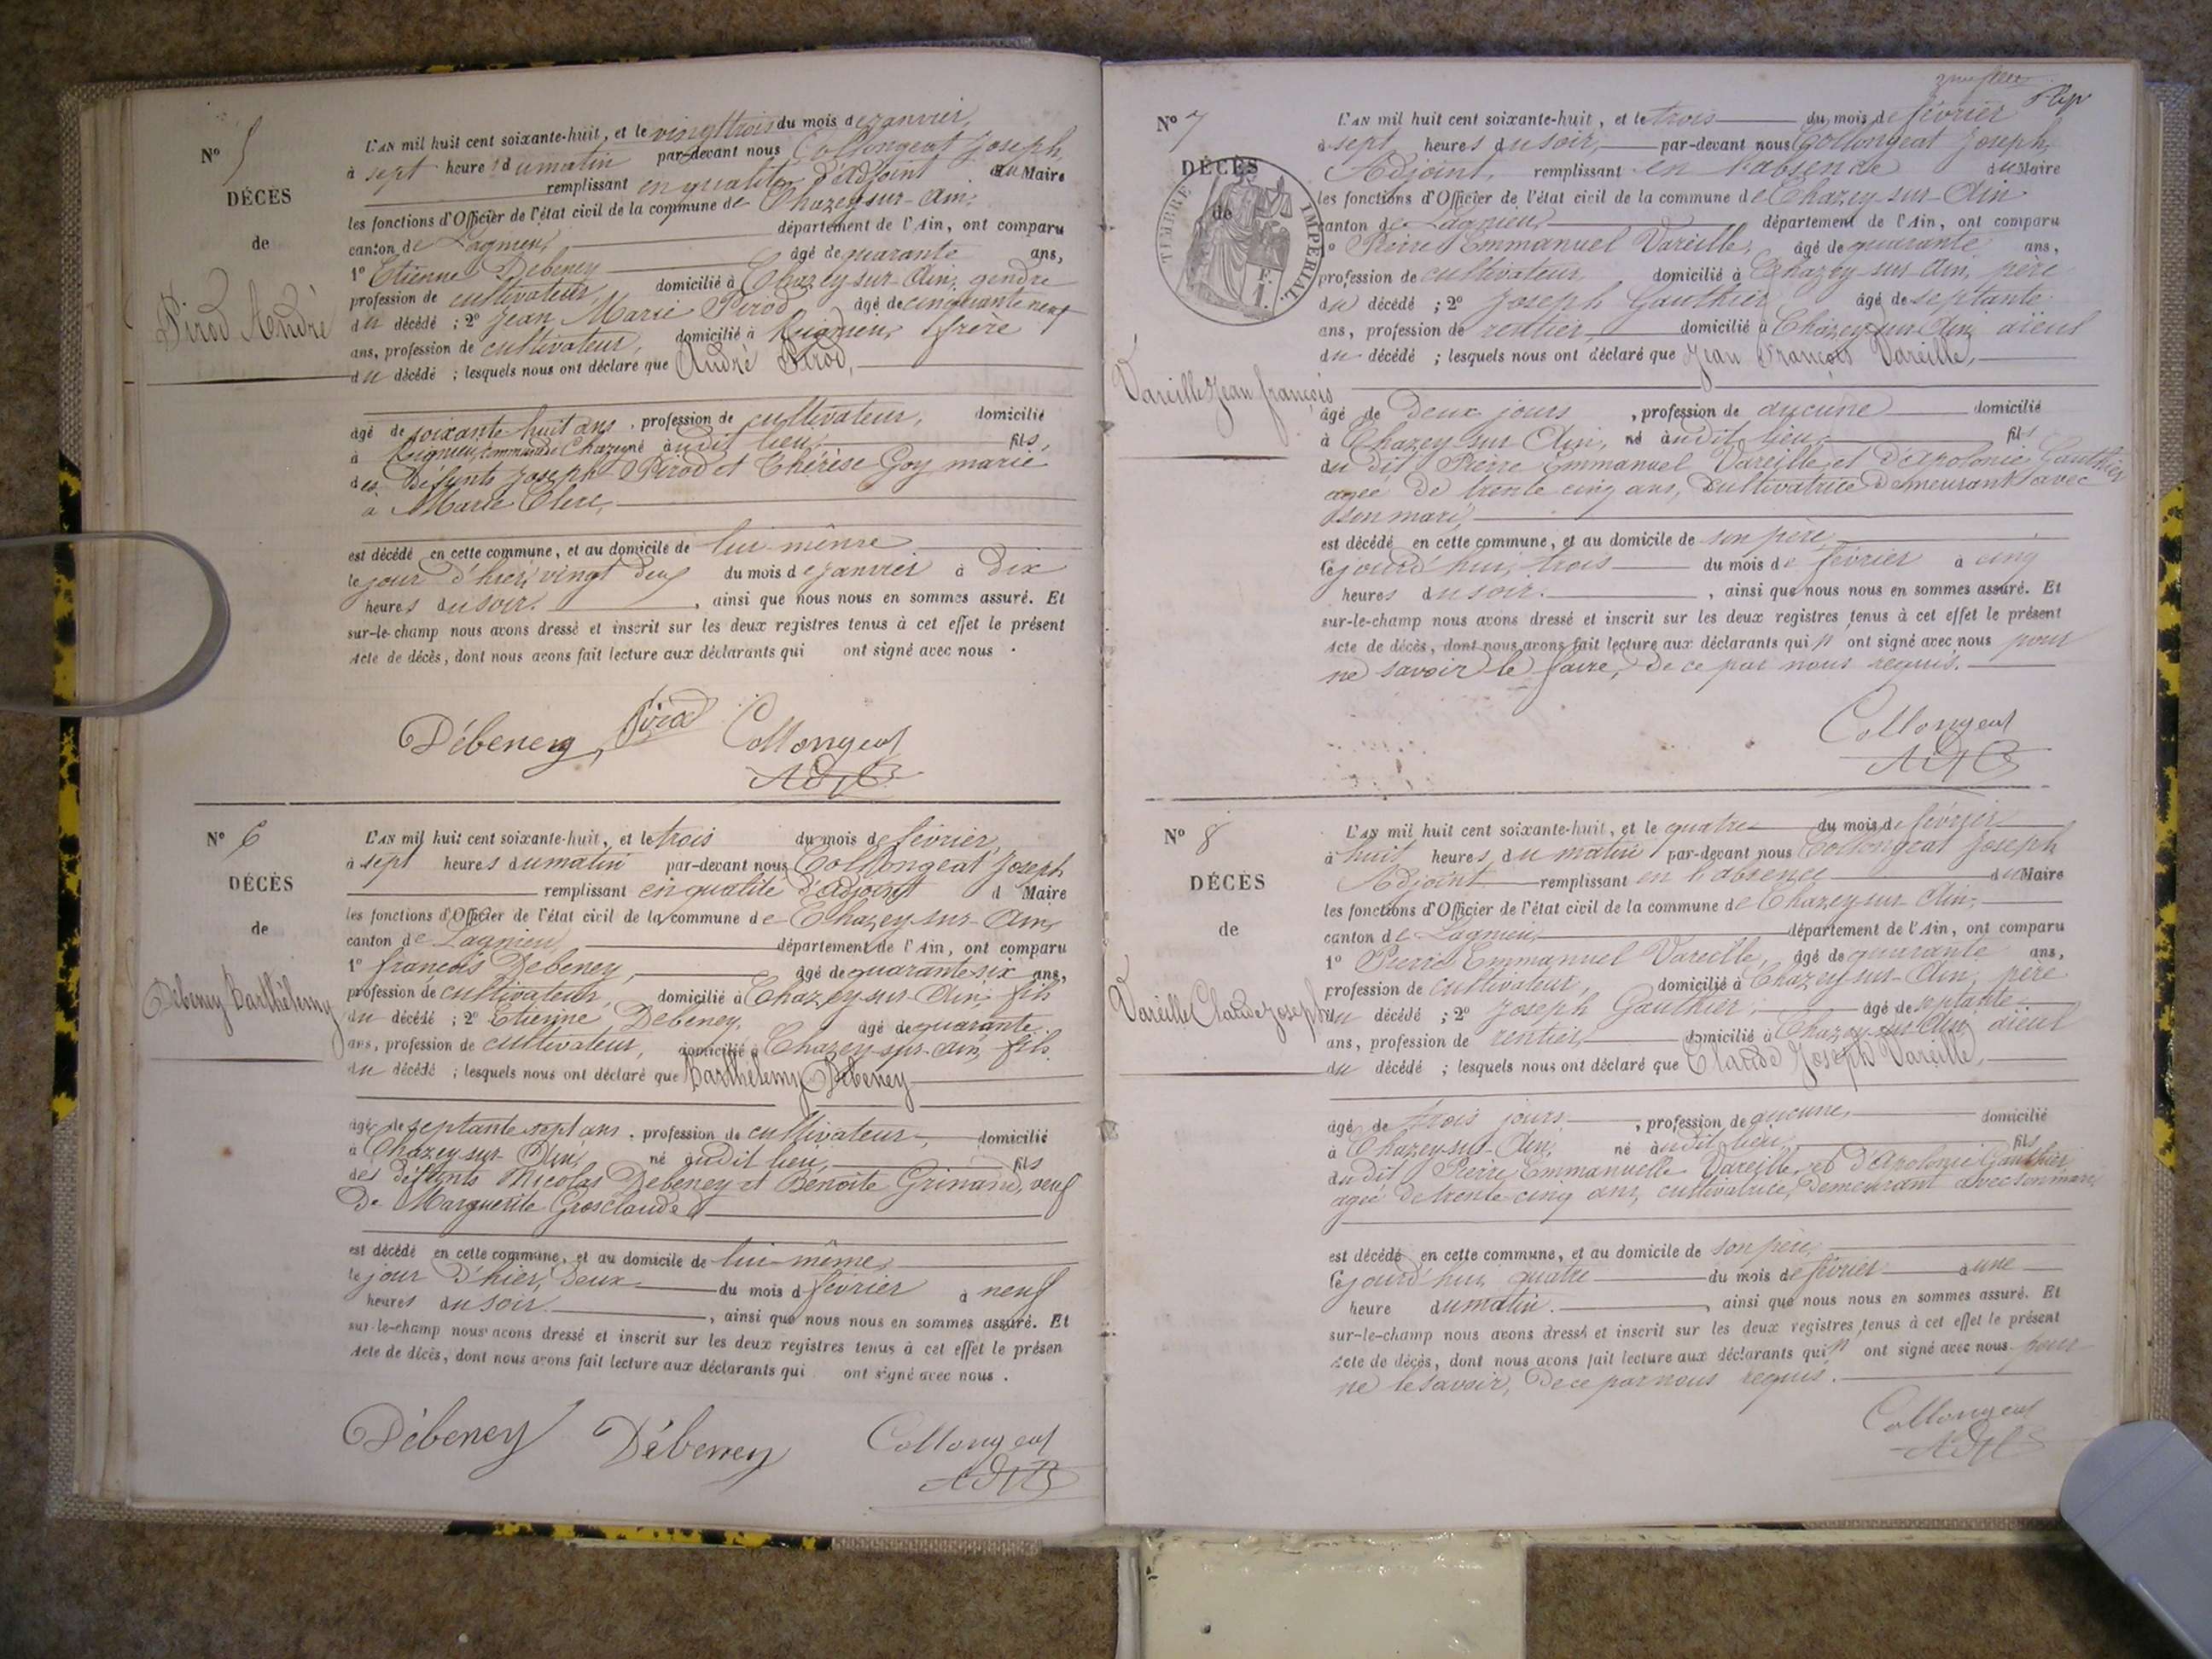 N° 5
DÉCÈS
de
Pirod André
L'AN mil huit cent soixante-huit, et le vingt trois du mois de janvier,
à sept heures du matin par-devant nous Collongeat Joseph
remplissant en qualité d'Adjoint du Maire
les fonctions d'Officier de l'état civil de la commune de Chazey-sur-Ain,
canton de Lagnieu, département de l'Ain, ont comparu
1° Etienne Debeney âgé de quarante ans,
profession de cultivateur, domicilié à Chazey-sur-Ain, gendre
du décédé ; 2° Jean Marie Pirod âgé de cinquante neuf
ans, profession de cultivateur, domicilié à Rignieu, frère
du décédé ; lesquels nous ont déclaré que André Pirod,
âgé de soixante-huit ans, profession de cultivateur, domicilié
à Rignieu, commune de Chazey né audit lieu, fils
des défunts Joseph Pirod et Thérèse Goy marié
à Marie Clerc,
est décédé en cette commune, et au domicile de lui-même
le jour d'hier, vingt deux du mois de janvier à dix
heures du soir. , ainsi que nous nous en sommes assuré. Et
sur-le-champ nous avons dressé et inscrit sur les deux registres tenus à cet effet le présent
Acte de décès, dont nous avons fait lecture aux déclarants qui ont signé avec nous .
Débeney Pirod Collongeat
Adjt
N° 6
DÉCÈS
de
Debeney Barthélemy
L'AN mil huit cent soixante-huit, et le trois du mois de février,
à sept heures du matin par-devant nous Collongeat Joseph
remplissant en qualité d'adjoint d Maire
les fonctions d'Officier de l'état civil de la commune de Chazey-sur-Ain,
canton de Lagnieu, département de l'Ain, ont comparu
1° francois Debeney, âgé de quarante six ans,
profession de cultivateur, domicilié à Chazey-sur-Ain, fils
du décédé ; 2° Etienne Debeney, âgé de quarante
ans, profession de cultivateur, domicilié à Chazey-sur-Ain, fils
du décédé ; lesquels nous ont déclaré que Barthélemy Debeney
âgé de septante sept ans, profession de cultivateur, domicilié
à Chazey-sur-Ain, né audit lieu, fils
des défunts Nicolas Debeney et Benoite Grinand, veuf
De Marguerite Grosclaude
est décédé en cette commune, et au domicile de lui-même,
le jour d'hier, deux du mois d février à neuf
heures du soir. , ainsi que nous nous en sommes assuré. Et
sur-le-champ nous avons dressé et inscrit sur les deux registres tenus à cet effet le présen
Acte de décès, dont nous avons fait lecture aux déclarants qui ont signé avec nous .
Débeney Débeney Collongeat
Adjt
N° 7
DÉCÈS
de
TIMBRE IMPÉRIAL
Vareille Jean françois
L'AN mil huit cent soixante-huit, et le trois du mois de février
à sept heures du soir, par-devant nous Collongeat Joseph,
Adjoint, remplissant en l'absence du Maire
les fonctions d'Officier de l'état civil de la commune de Chazey-sur-Ain
canton de Lagnieu, département de l'Ain, ont comparu
1° Pierre Emmanuel Vareille, âgé de quarante ans,
profession de cultivateur domicilié à Chazey-sur-Ain, père
du décédé ; 2° Joseph Gauthier âgé de septante
ans, profession de rentier, domicilié à Chazey-sur-Ain, aïeul
du décédé ; lesquels nous ont déclaré que Jean François Vareille,
âgé de Deux jours , profession de aucune domicilié
à Chazey-sur Ain, né audit lieu, fils
du dit Pierre Emmanuel Vareille, et d'Apolonie Gauthier
agée de trente cinq ans, Cultivatrice Demeurant avec
son mari,
est décédé en cette commune, et au domicile de son père,
le jourd'hui, trois du mois de février à cinq
heures du soir. , ainsi que nous nous en sommes assuré. Et
sur-le-champ nous avons dressé et inscrit sur les deux registres tenus à cet effet le présent
Acte de décès, dont nous avons fait lecture aux déclarants qui n'ont signé avec nous pour
ne savoir le faire, de ce par nous requis.
Collongeat
Adjt
N° 8
DÉCÈS
de
Vareille Claude Joseph
L'AN mil huit cent soixante-huit, et le quatre du mois de février
à huit heures du matin par-devant nous Collongeat Joseph
Adjoint remplissant en l'absence du Maire
les fonctions d'Officier de l'état civil de la commune de Chazey-sur-Ain,
canton de Lagnieu, département de l'Ain, ont comparu
1° Pierre Emmanuel Vareille, âgé de quarante ans,
profession de cultivateur, domicilié à Chazey-sur-Ain, père
du décédé ; 2° Joseph Gauthier, âgé de septante
ans, profession de rentier, domicilié à Chazey-sur-Ain, aïeul
du décédé ; lesquels nous ont déclaré que Claude Joseph Vareille,
âgé de trois jours , profession de aucune, domicilié
à Chazey-sur-Ain, né audit lieu, fils
du dit Pierre Emmanuelle Vareille, et d'Apolonie Gauthier,
agée de trente cinq ans, cultivatrice, demeurant avec son mari,
est décédé en cette commune, et au domicile de son père,
le jourd'hui quatre du mois de février à une
heure du matin. , ainsi que nous nous en sommes assuré. Et
sur-le-champ nous avons dressé et inscrit sur les deux registres tenus à cet effet le présent
Acte de décès, dont nous avons fait lecture aux déclarants qui n'ont signé avec nous pour
ne le savoir, de ce par nous requis.
Collongeat
Adjt